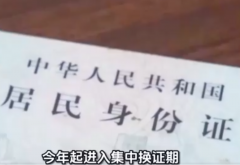 中华人民共和国
居民身份证
今年起进入集中换证期